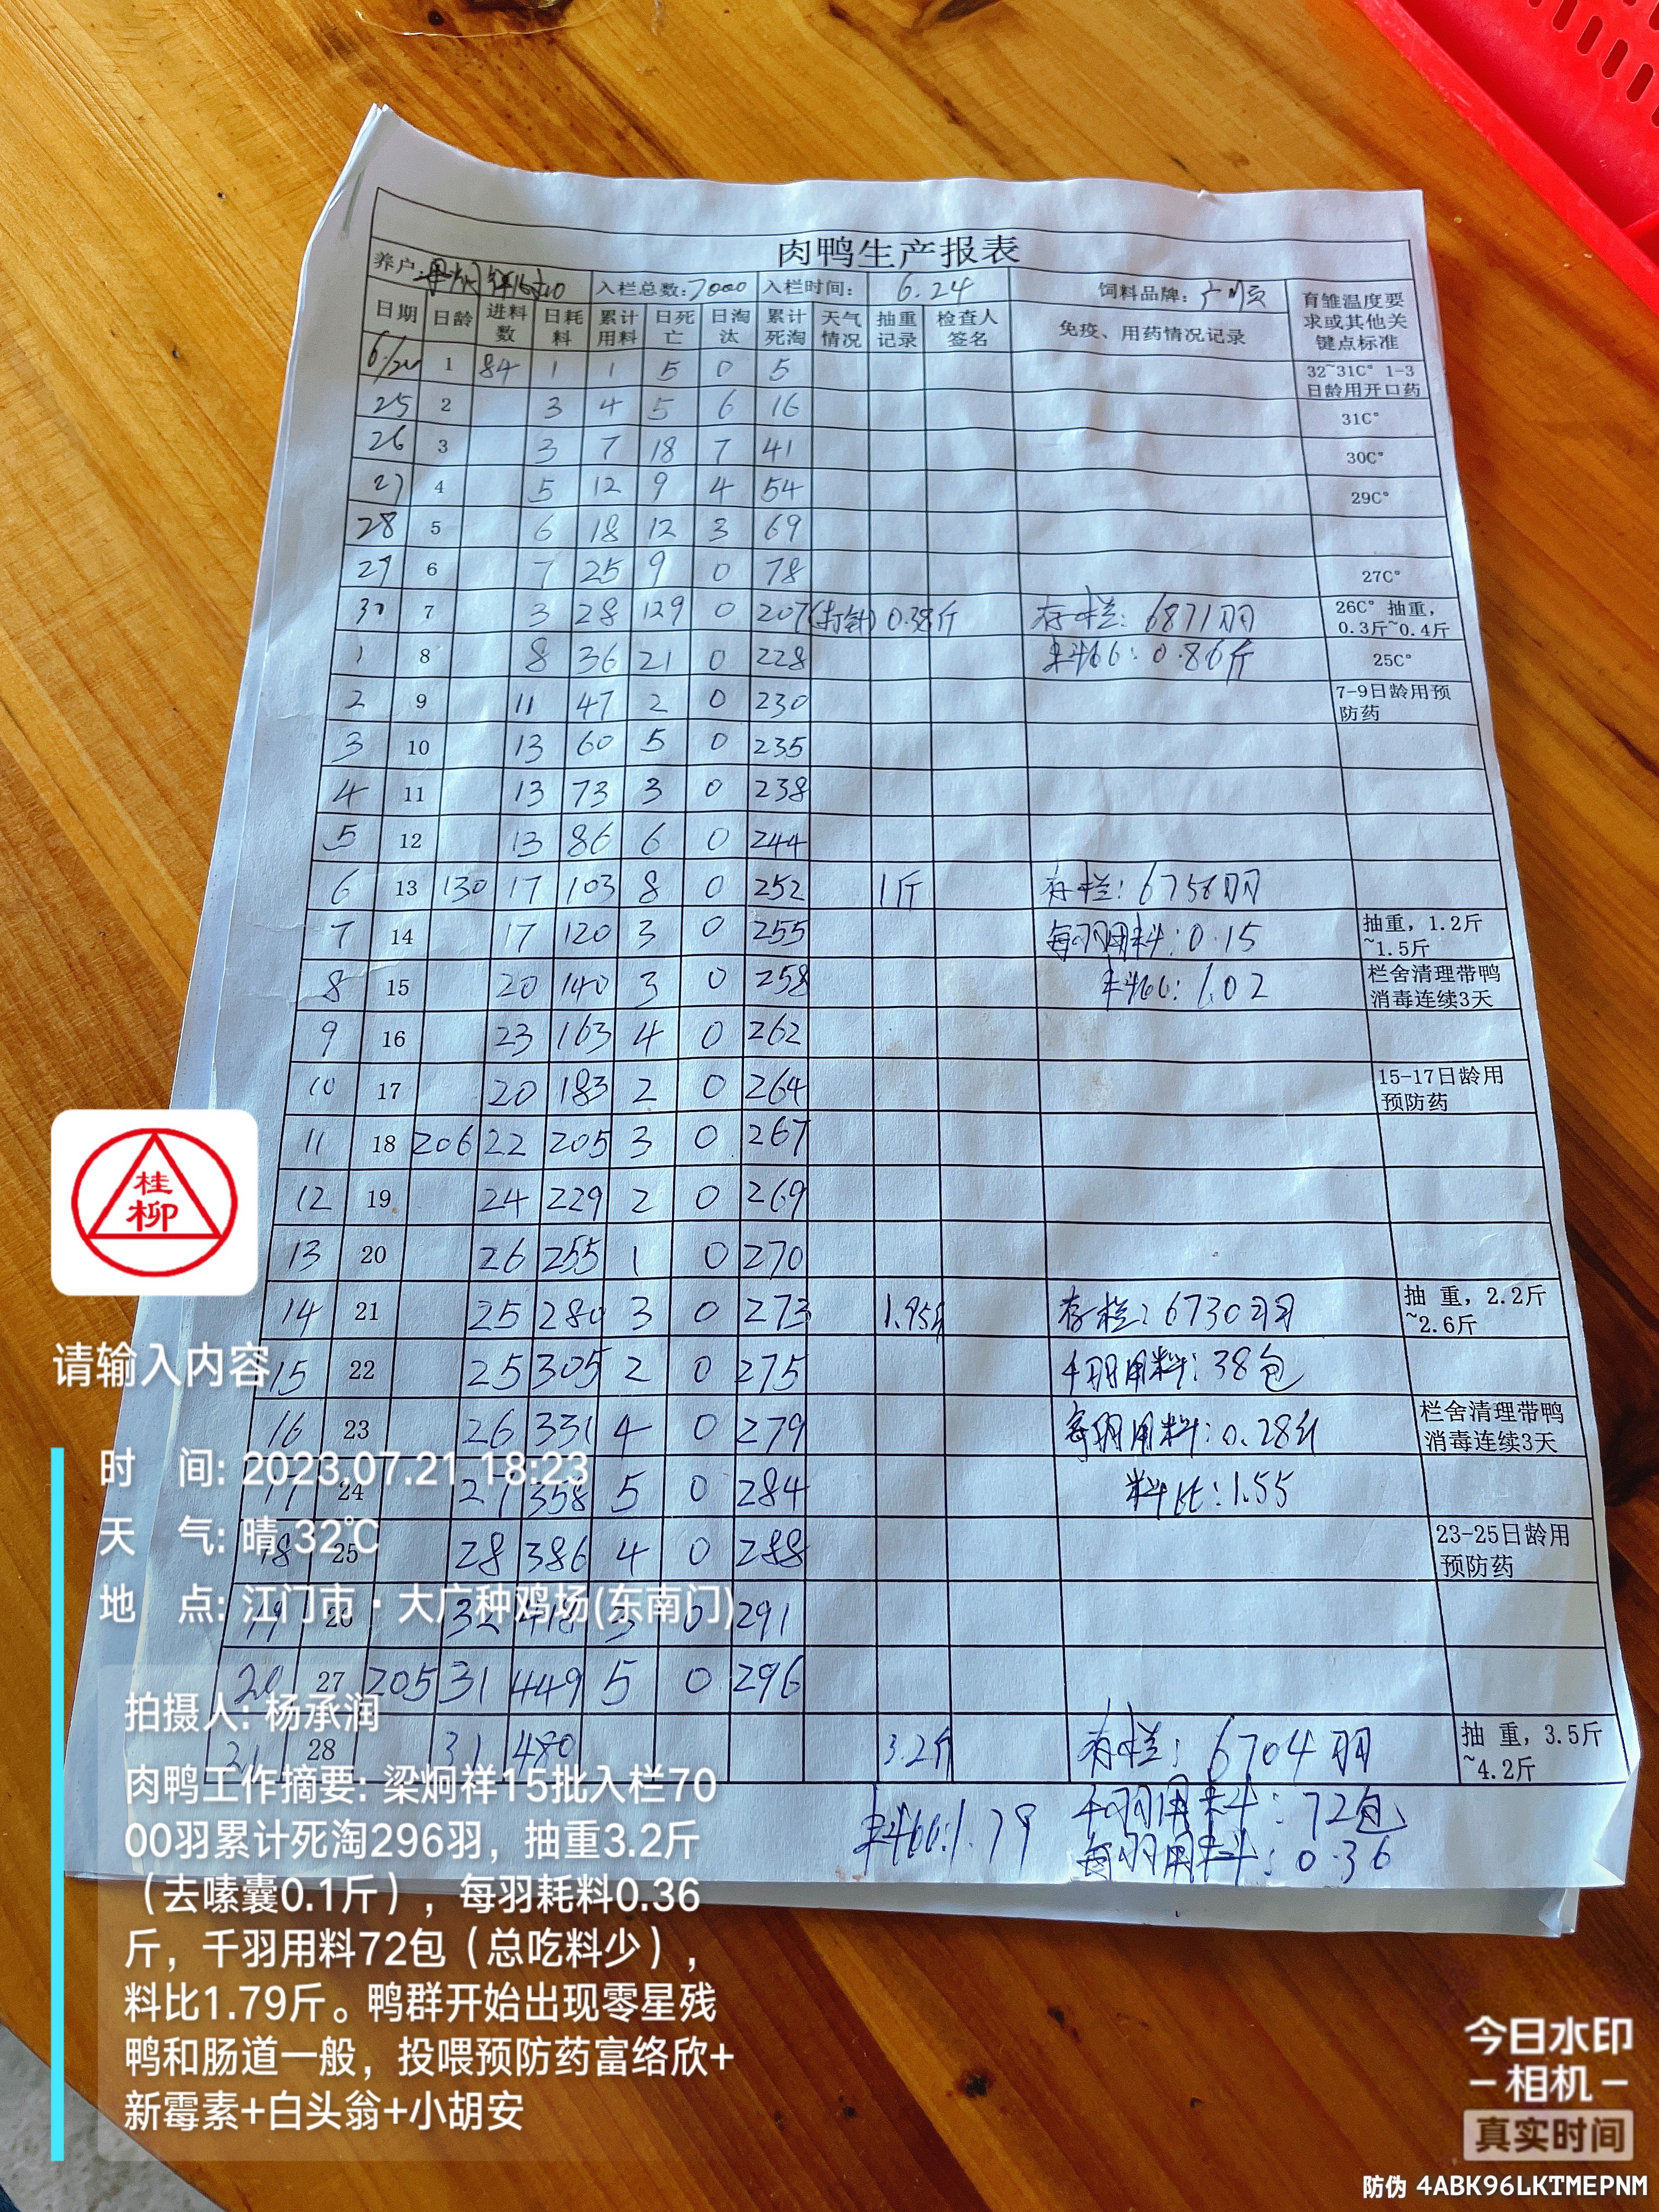 肉鸭生产报表
养户: 入栏总数:7000 入栏时间: 6.24 饲料品牌:
日期 日龄 进料数 日耗料 累计用料 日死亡 日淘汰 累计死淘 天气情况 抽重记录 检查人签名 免疫、用药情况记录 育雏温度要求或其他关键点标准
6/24 1 84 1 1 5 0 5 32~31C° 1-3日龄用开口药
25 2 3 4 5 6 16 31C°
26 3 3 7 18 7 41 30C°
27 4 5 12 9 4 54 29C°
28 5 6 18 12 3 69
29 6 7 25 9 0 78 27C°
30 7 3 28 129 0 207(打针) 0.38斤 存栏: 6871羽 26C° 抽重,0.3斤~0.4斤
1 8 8 36 21 0 228 料比: 0.86斤 25C°
2 9 11 47 2 0 230 7-9日龄用预防药
3 10 13 60 5 0 235
4 11 13 73 3 0 238
5 12 13 86 6 0 244
6 13 130 17 103 8 0 252 1斤 存栏: 6758羽
7 14 17 120 3 0 255 每羽用料: 0.15 抽重, 1.2斤~1.5斤
8 15 20 140 3 0 258 料比: 1.02 栏舍清理带鸭消毒连续3天
9 16 23 163 4 0 262
10 17 20 183 2 0 264 15-17日龄用预防药
11 18 206 22 205 3 0 267
12 19 24 229 2 0 269
13 20 26 255 1 0 270
14 21 25 280 3 0 273 1.95斤 存栏: 6730羽 抽 重, 2.2斤~2.6斤
15 22 25 305 2 0 275 千羽用料: 38包
16 23 26 331 4 0 279 每羽用料: 0.28斤 栏舍清理带鸭消毒连续3天
17 24 27 358 5 0 284 料比: 1.55
18 25 28 386 4 0 288 23-25日龄用预防药
19 26 32 418 3 0 291
20 27 205 31 449 5 0 296
21 28 31 480 3.2斤 存栏: 6704羽 抽 重, 3.5斤~4.2斤
料比:1.79 千羽用料: 72包
每羽用料: 0.36
桂柳
请输入内容
时 间: 2023.07.21 18:23
天 气: 晴 32℃
地 点: 江门市·大广种鸡场(东南门)
拍摄人: 杨承润
肉鸭工作摘要: 梁炯祥15批入栏70
00羽累计死淘296羽，抽重3.2斤
（去嗉囊0.1斤），每羽耗料0.36
斤，千羽用料72包（总吃料少），
料比1.79斤。鸭群开始出现零星残
鸭和肠道一般，投喂预防药富络欣+
新霉素+白头翁+小胡安
今日水印
-相机-
真实时间
防伪 4ABK96LKTMEPNM